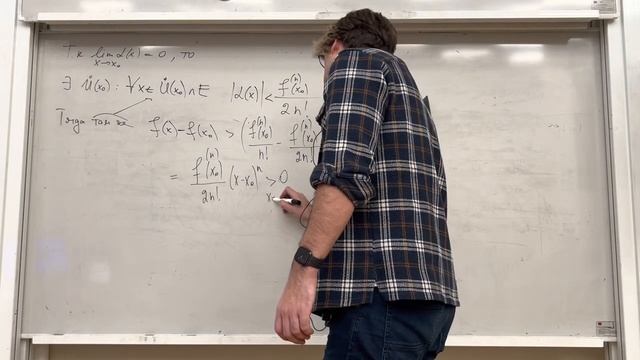 Т.к. lim_{x→x₀} α(x) = 0, то
∃ U̇(x₀) : ∀x ∈ U̇(x₀) ∩ E |α(x)| < f⁽ⁿ⁾(x₀) / 2n!
Тогда там же f(x) − f(x₀) > (f⁽ⁿ⁾(x₀) / n! − f⁽ⁿ⁾(x₀) / 2n!)
= f⁽ⁿ⁾(x₀) / 2n! (x−x₀)ⁿ > 0
x